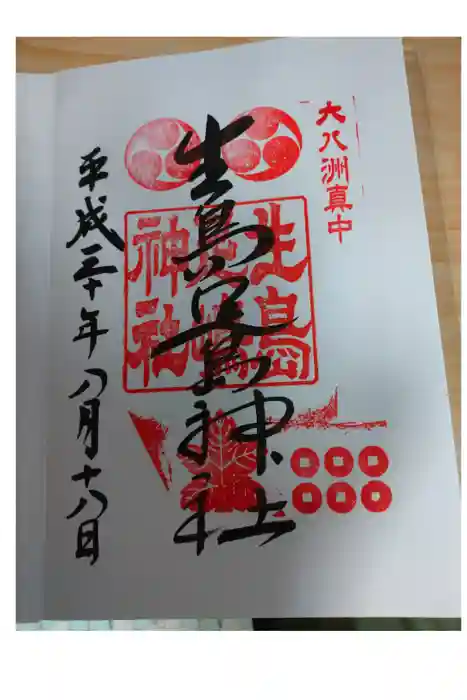 大八洲真中
生島足島神社
生島足嶋神社
平成三十年八月十八日